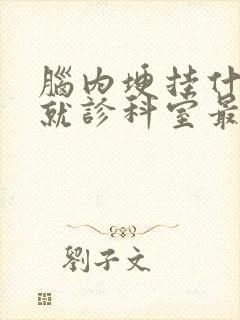 腦內埂挂什
就診科室最
劉子文